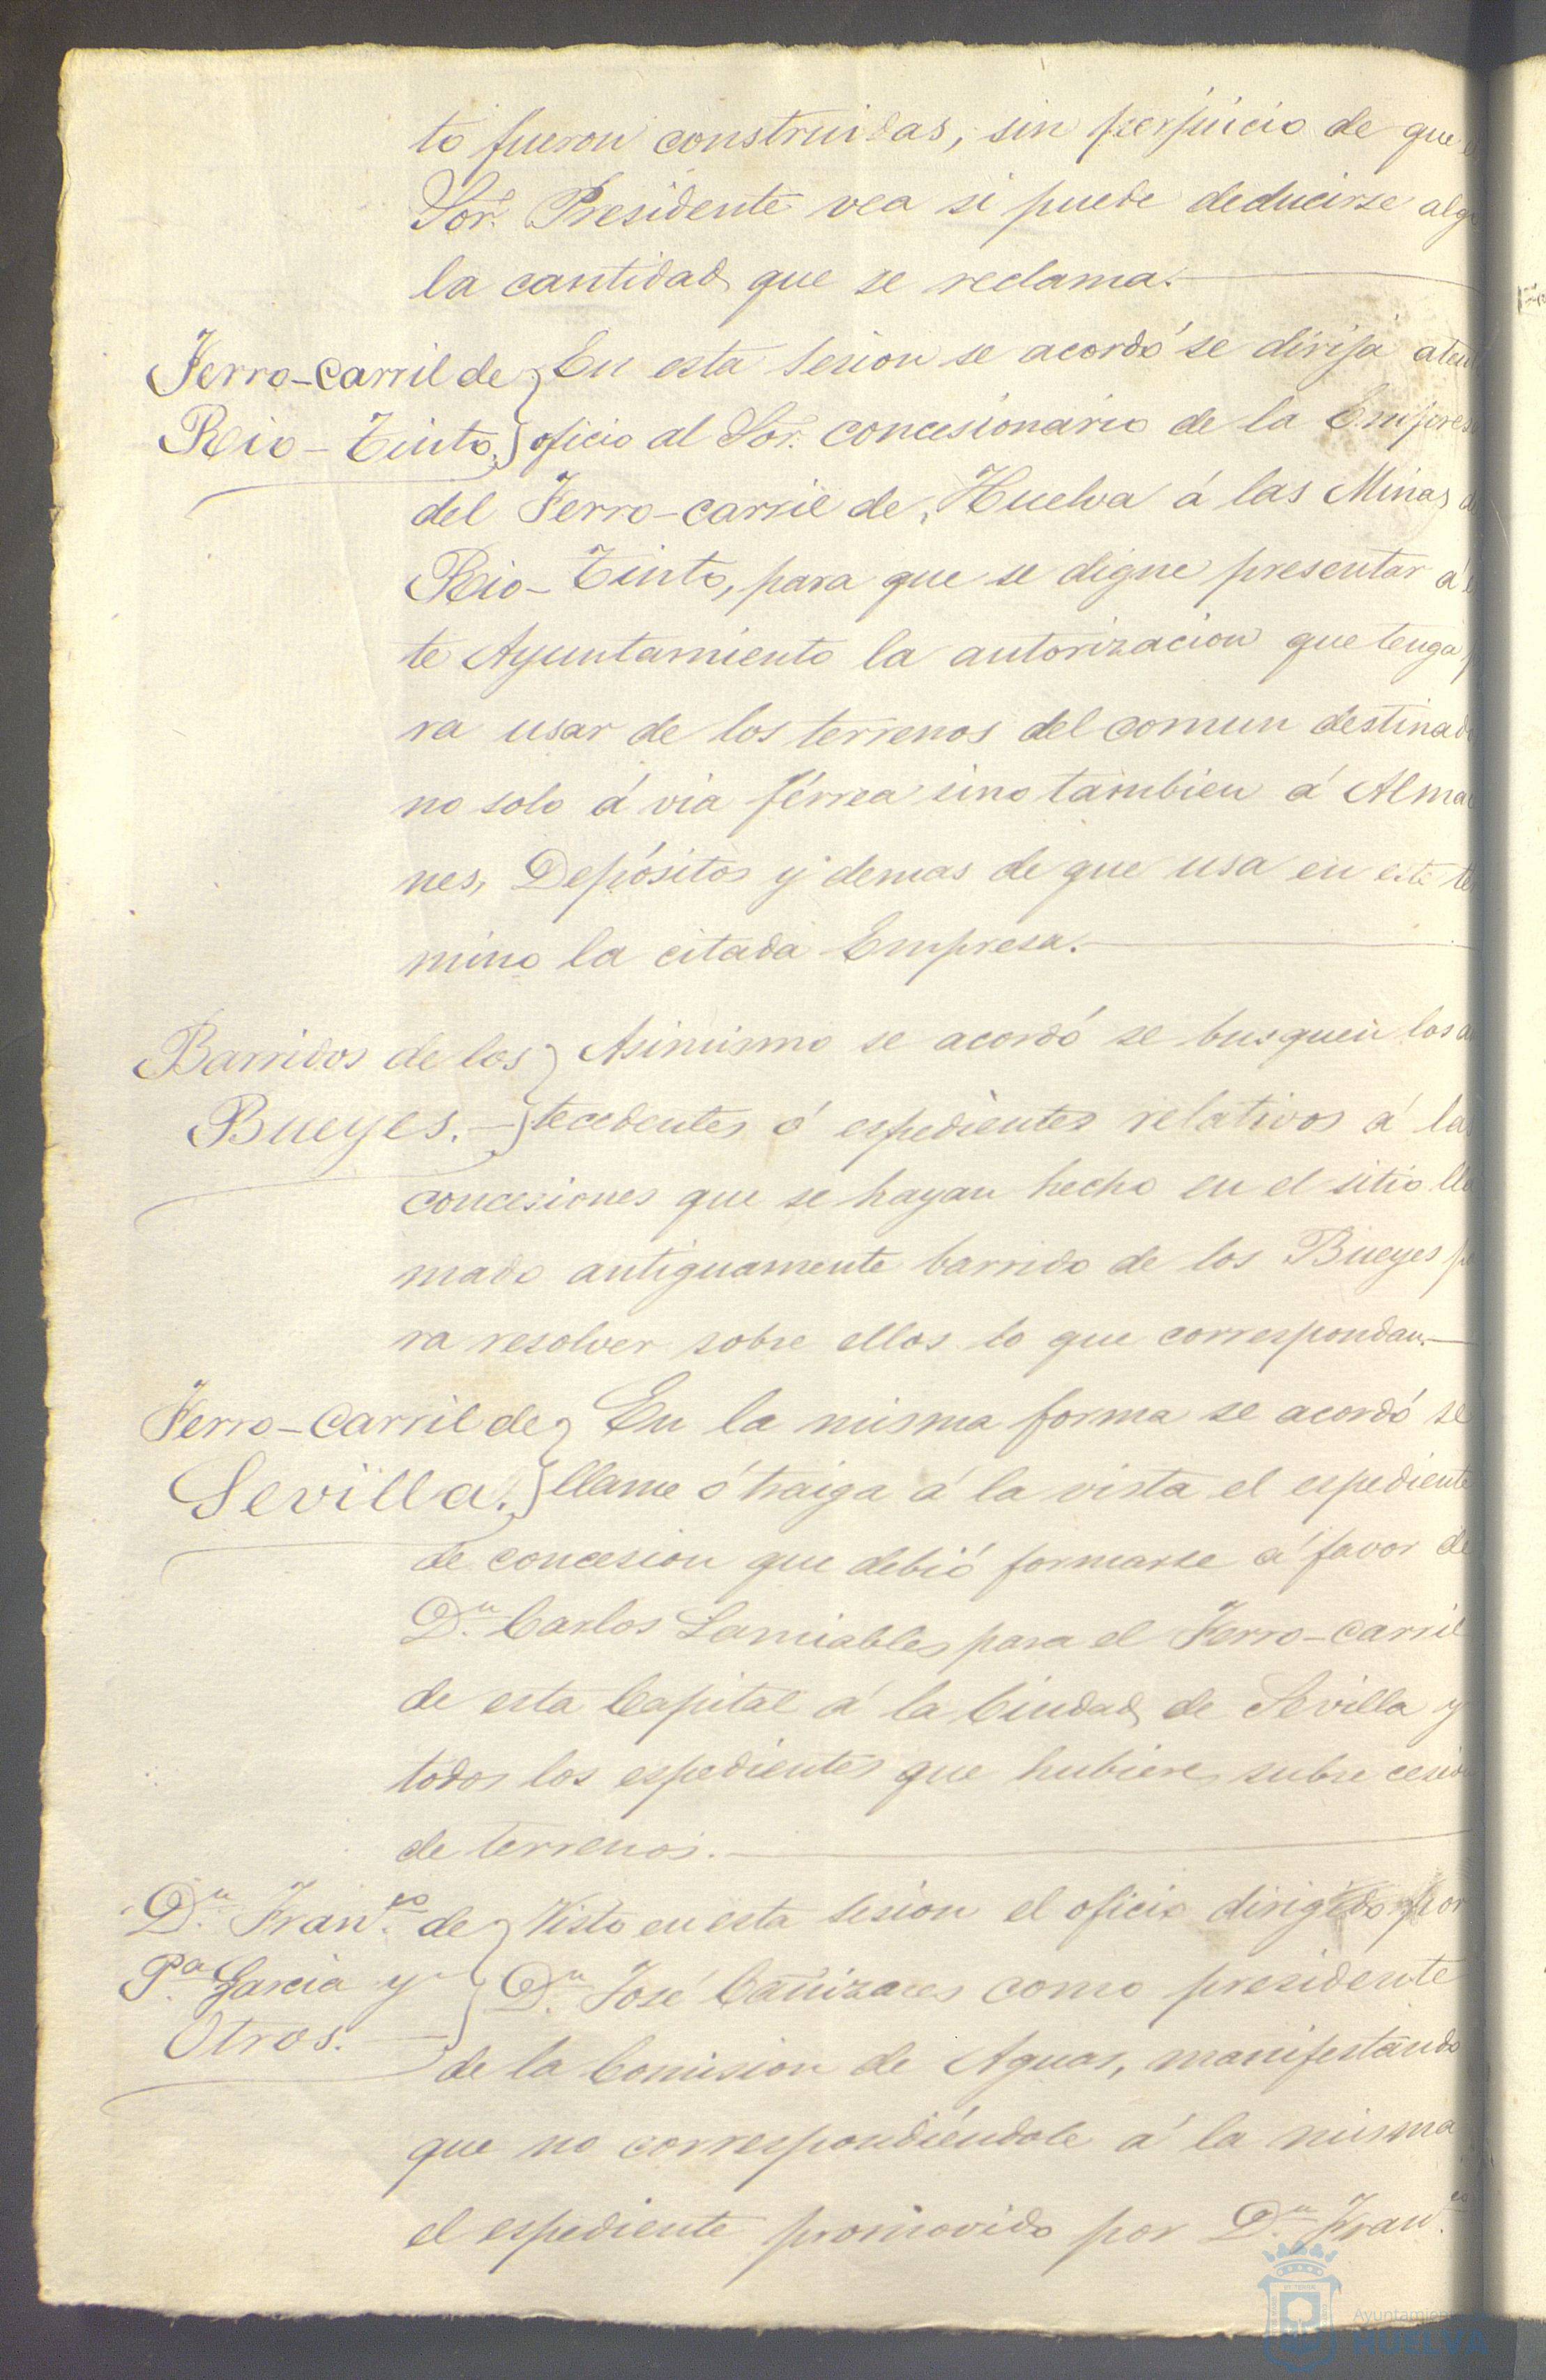 to fueron construidas, sin perjuicio de que
Sor. Presidente vea si puede deducirse alg
la cantidad que se reclama.
Ferro-carril de
Rio-Tinto.
En esta sesion se acordó se dirija aten
oficio al Sor. concesionario de la Empres
del Ferro-carril de Huelva á las Minas d
Rio-Tinto, para que se digne presentar á
te Ayuntamiento la autorizacion que tenga p
ra usar de los terrenos del comun destinad
no solo á via férrea sino tambien á Alma
nes, Depósitos y demas de que usa en este te
mino la citada Empresa.
Barridos de los
Bueyes.
Asimismo se acordó se busquen los a
tecedentes ó espedientes relativos á la
concesiones que se hayan hecho en el sitio lla
mado antiguamente barrido de los Bueyes p
ra resolver sobre ellos lo que correspondan.
Ferro-carril de
Sevilla.
En la misma forma se acordó se
llame ó traiga á la vista el espediente
de concesion que debió formarse á favor de
Dn. Carlos Lamiables para el Ferro-carril
de esta Capital á la Ciudad de Sevilla y
todos los espedientes que hubiere sobre cesio
de terrenos.
Dn. Franco. de
Pa. Garcia y
Otros.
Visto en esta sesion el oficio dirigido por
Dn. José Cañizares como presidente
de la Comision de Aguas, manifestando
que no correspondiéndole á la misma
el espediente promovido por Dn. Franco.
Ayuntamie
HUELVA